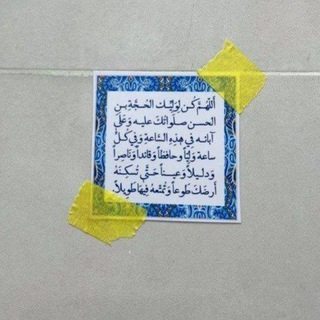 اَللّهُمَّ كُن لِوَلِيِّك الحُجَّةِ بنِ
الحسن صلَواتُكَ عليه وَعَلَى
آبائه في هذِهِ السَّاعة وَفِي كُلِّ
ساعة وَلِيّاً وحافظاً وَقائداً وَناصِراً
وَدَليلاً وَعَيناً حَتَّى تُسكِنَهُ
أرضَكَ طَوعاً وَتُمَتِّعَهُ فِيهَا طَوِيلاً.